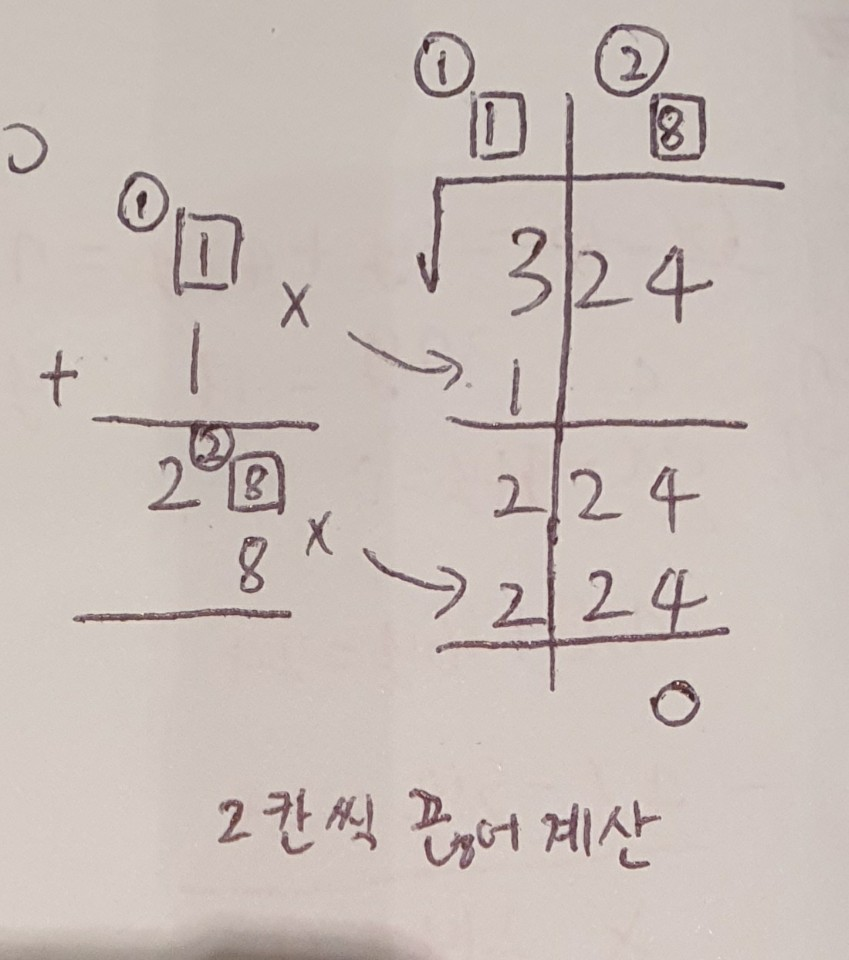 ①
1 ×
+ 1
2 ② 8
8 ×
① ②
1 8
√ 3 2 4
→ 1
2 2 4
→ 2 2 4
0
2칸씩 끊어 계산